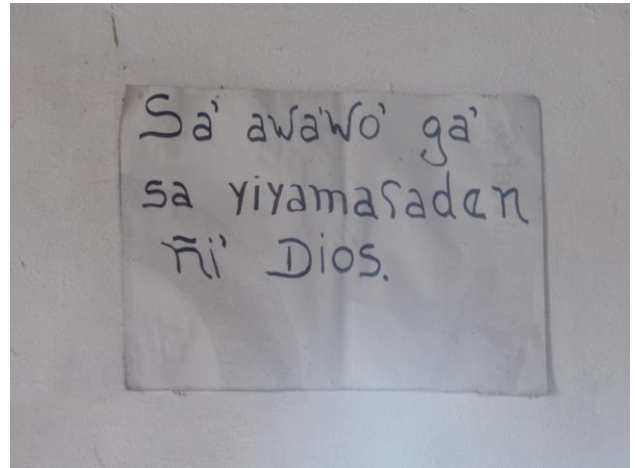 Sa' awa'wo' ga'
sa yiyamasaden
ñi' Dios.